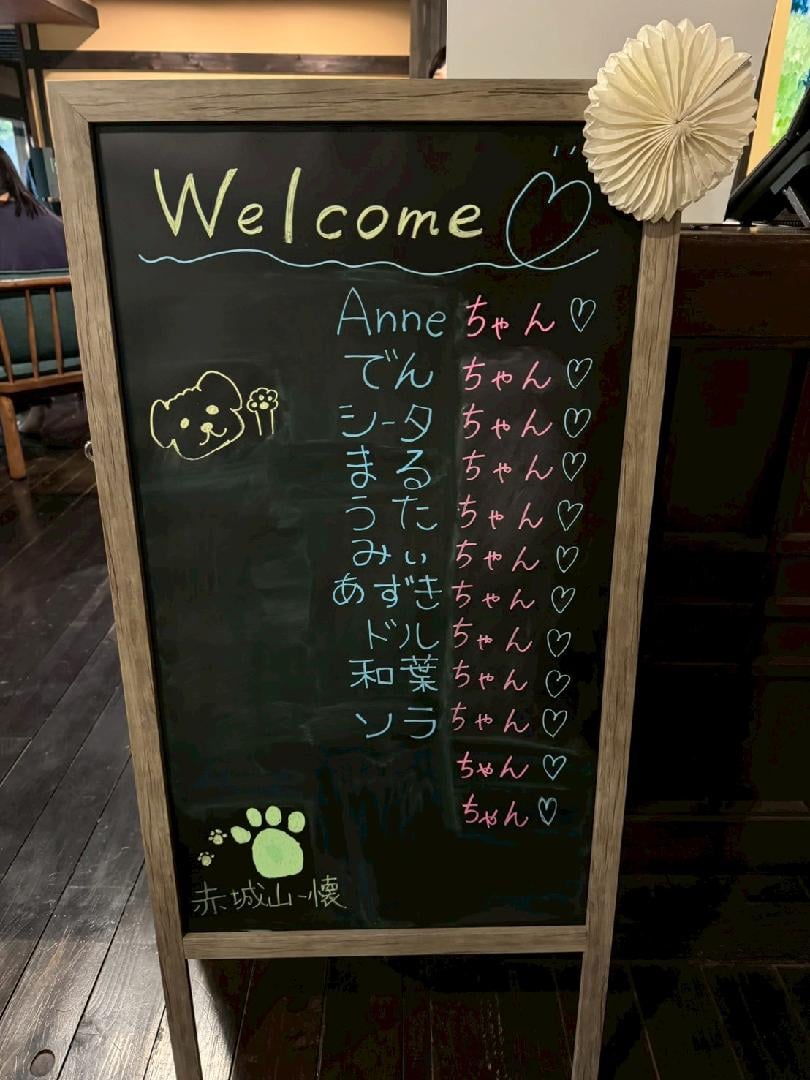 Welcome
Anneちゃん♡
でんちゃん♡
シータちゃん♡
まるちゃん♡
うたちゃん♡
みぃちゃん♡
あずきちゃん♡
ドルちゃん♡
和葉ちゃん♡
ソラちゃん♡
ちゃん♡
ちゃん♡
赤城山一懐